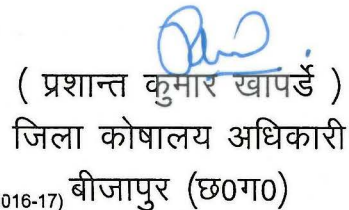 ( प्रशान्त कुमार खापर्डे )
जिला कोषालय अधिकारी
016-17) बीजापुर (छ0ग0)